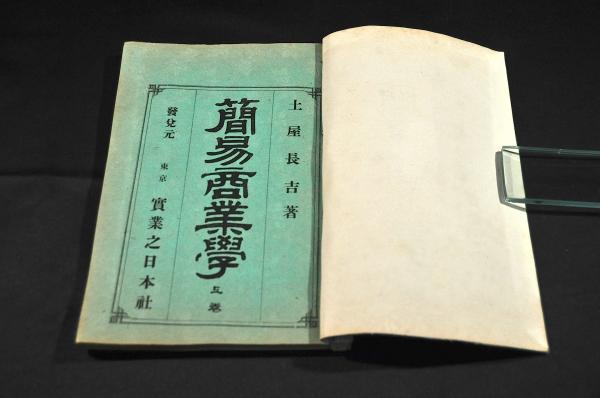 土屋長吉著
簡易商業學 五卷
發兌元 東京 實業之日本社